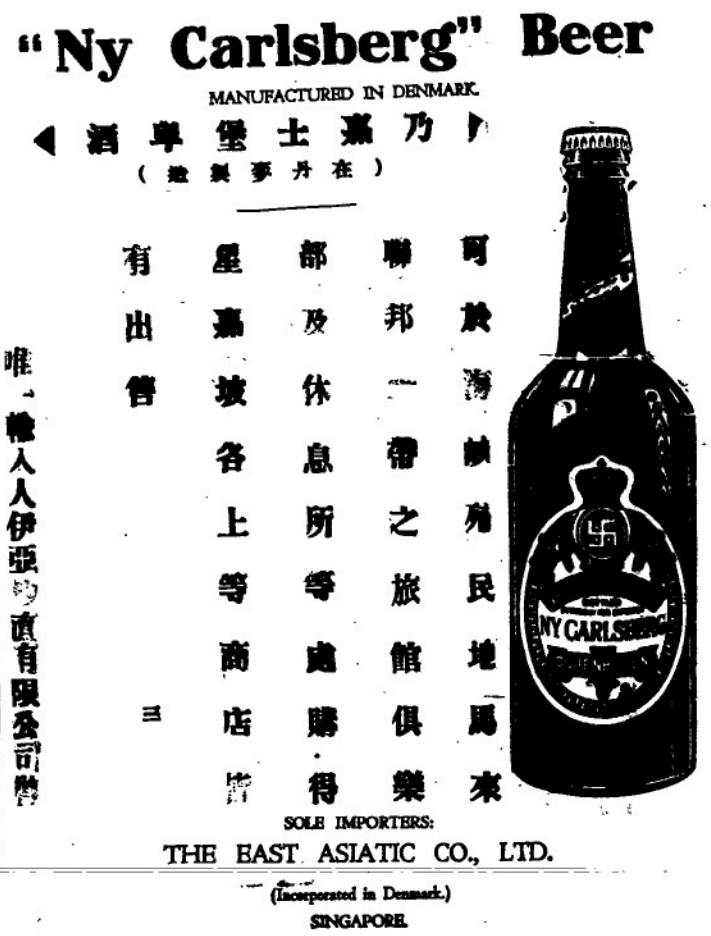 “Ny Carlsberg” Beer
MANUFACTURED IN DENMARK.
乃嘉士堡卑酒
(在丹麥製造)
可於海峽殖民地馬來
聯邦一帶之旅館俱樂
部及休息所等處購得
星嘉坡各上等商店皆
有出售
三
唯一輸入人伊亞的直有限公司
NY CARLSBERG
SOLE IMPORTERS:
THE EAST ASIATIC CO., LTD.
(Incorporated in Denmark.)
SINGAPORE.